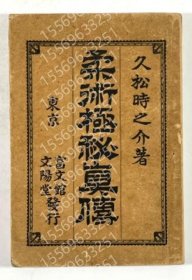 久松時之介著
柔術極秘真傳
東京
富文館
文陽堂
發行
15569633251